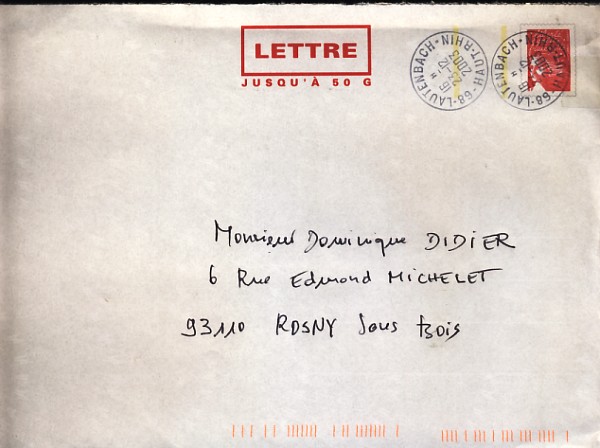 LETTRE
JUSQU'À 50 G
68-LAUTENBACH-HAUT-RHIN
2003
68-LAUTENBACH-HAUT-RHIN
Monsieur Dominique DIDIER
6 Rue Edmond MICHELET
93110 ROSNY Sous Bois